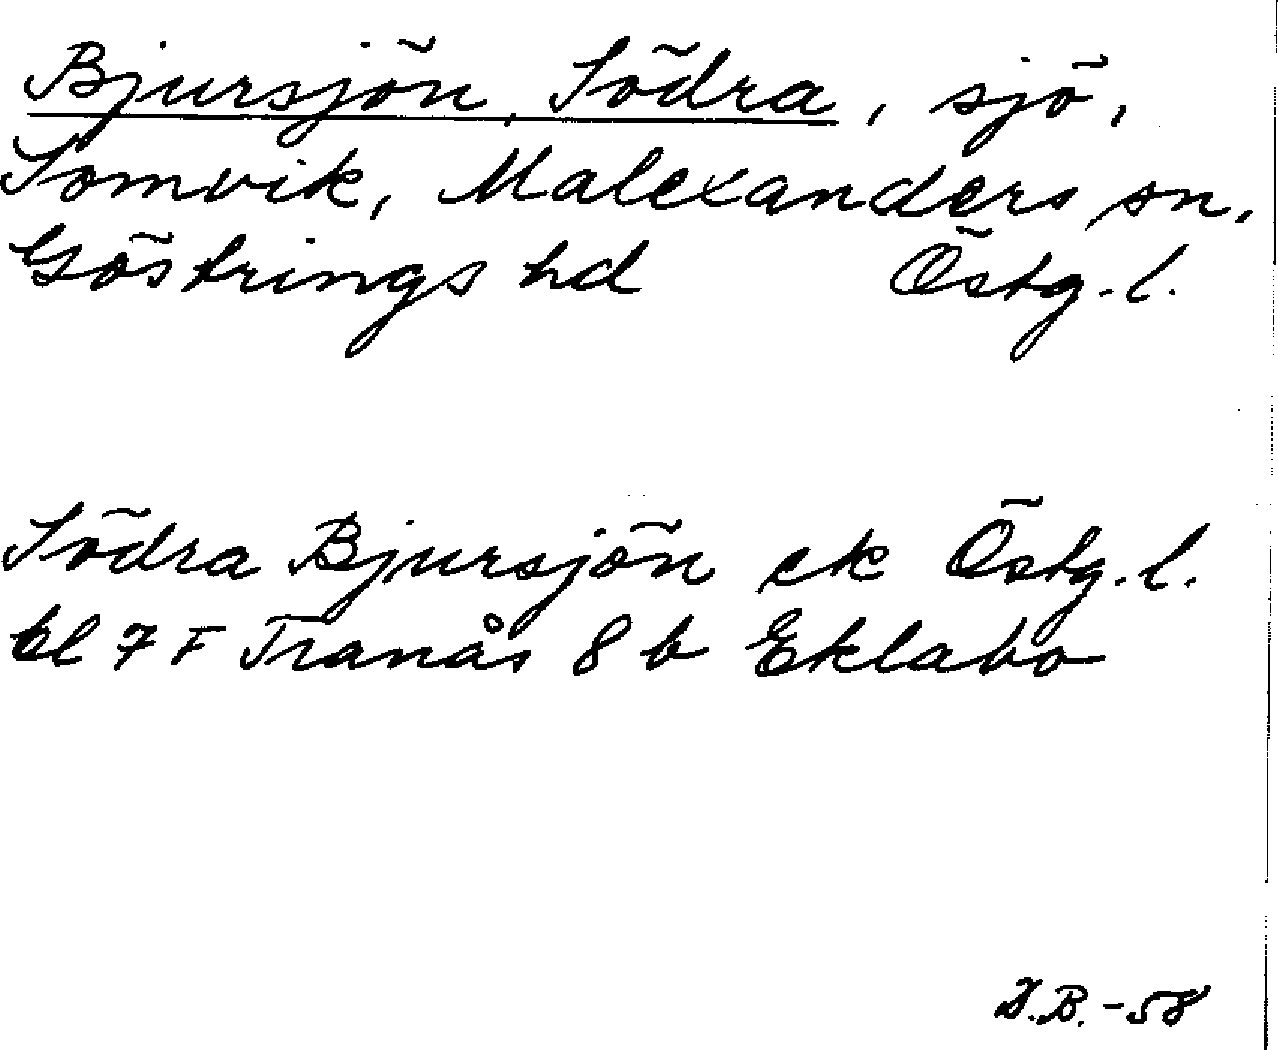 Bjursjön, Södra, sjö,
Somvik, Malexanders sn,
Göstrings hd Östg. l.
Södra Bjursjön ek Östg. l.
bl 7 F Tranås 8 b Eklabo
D.B. -58